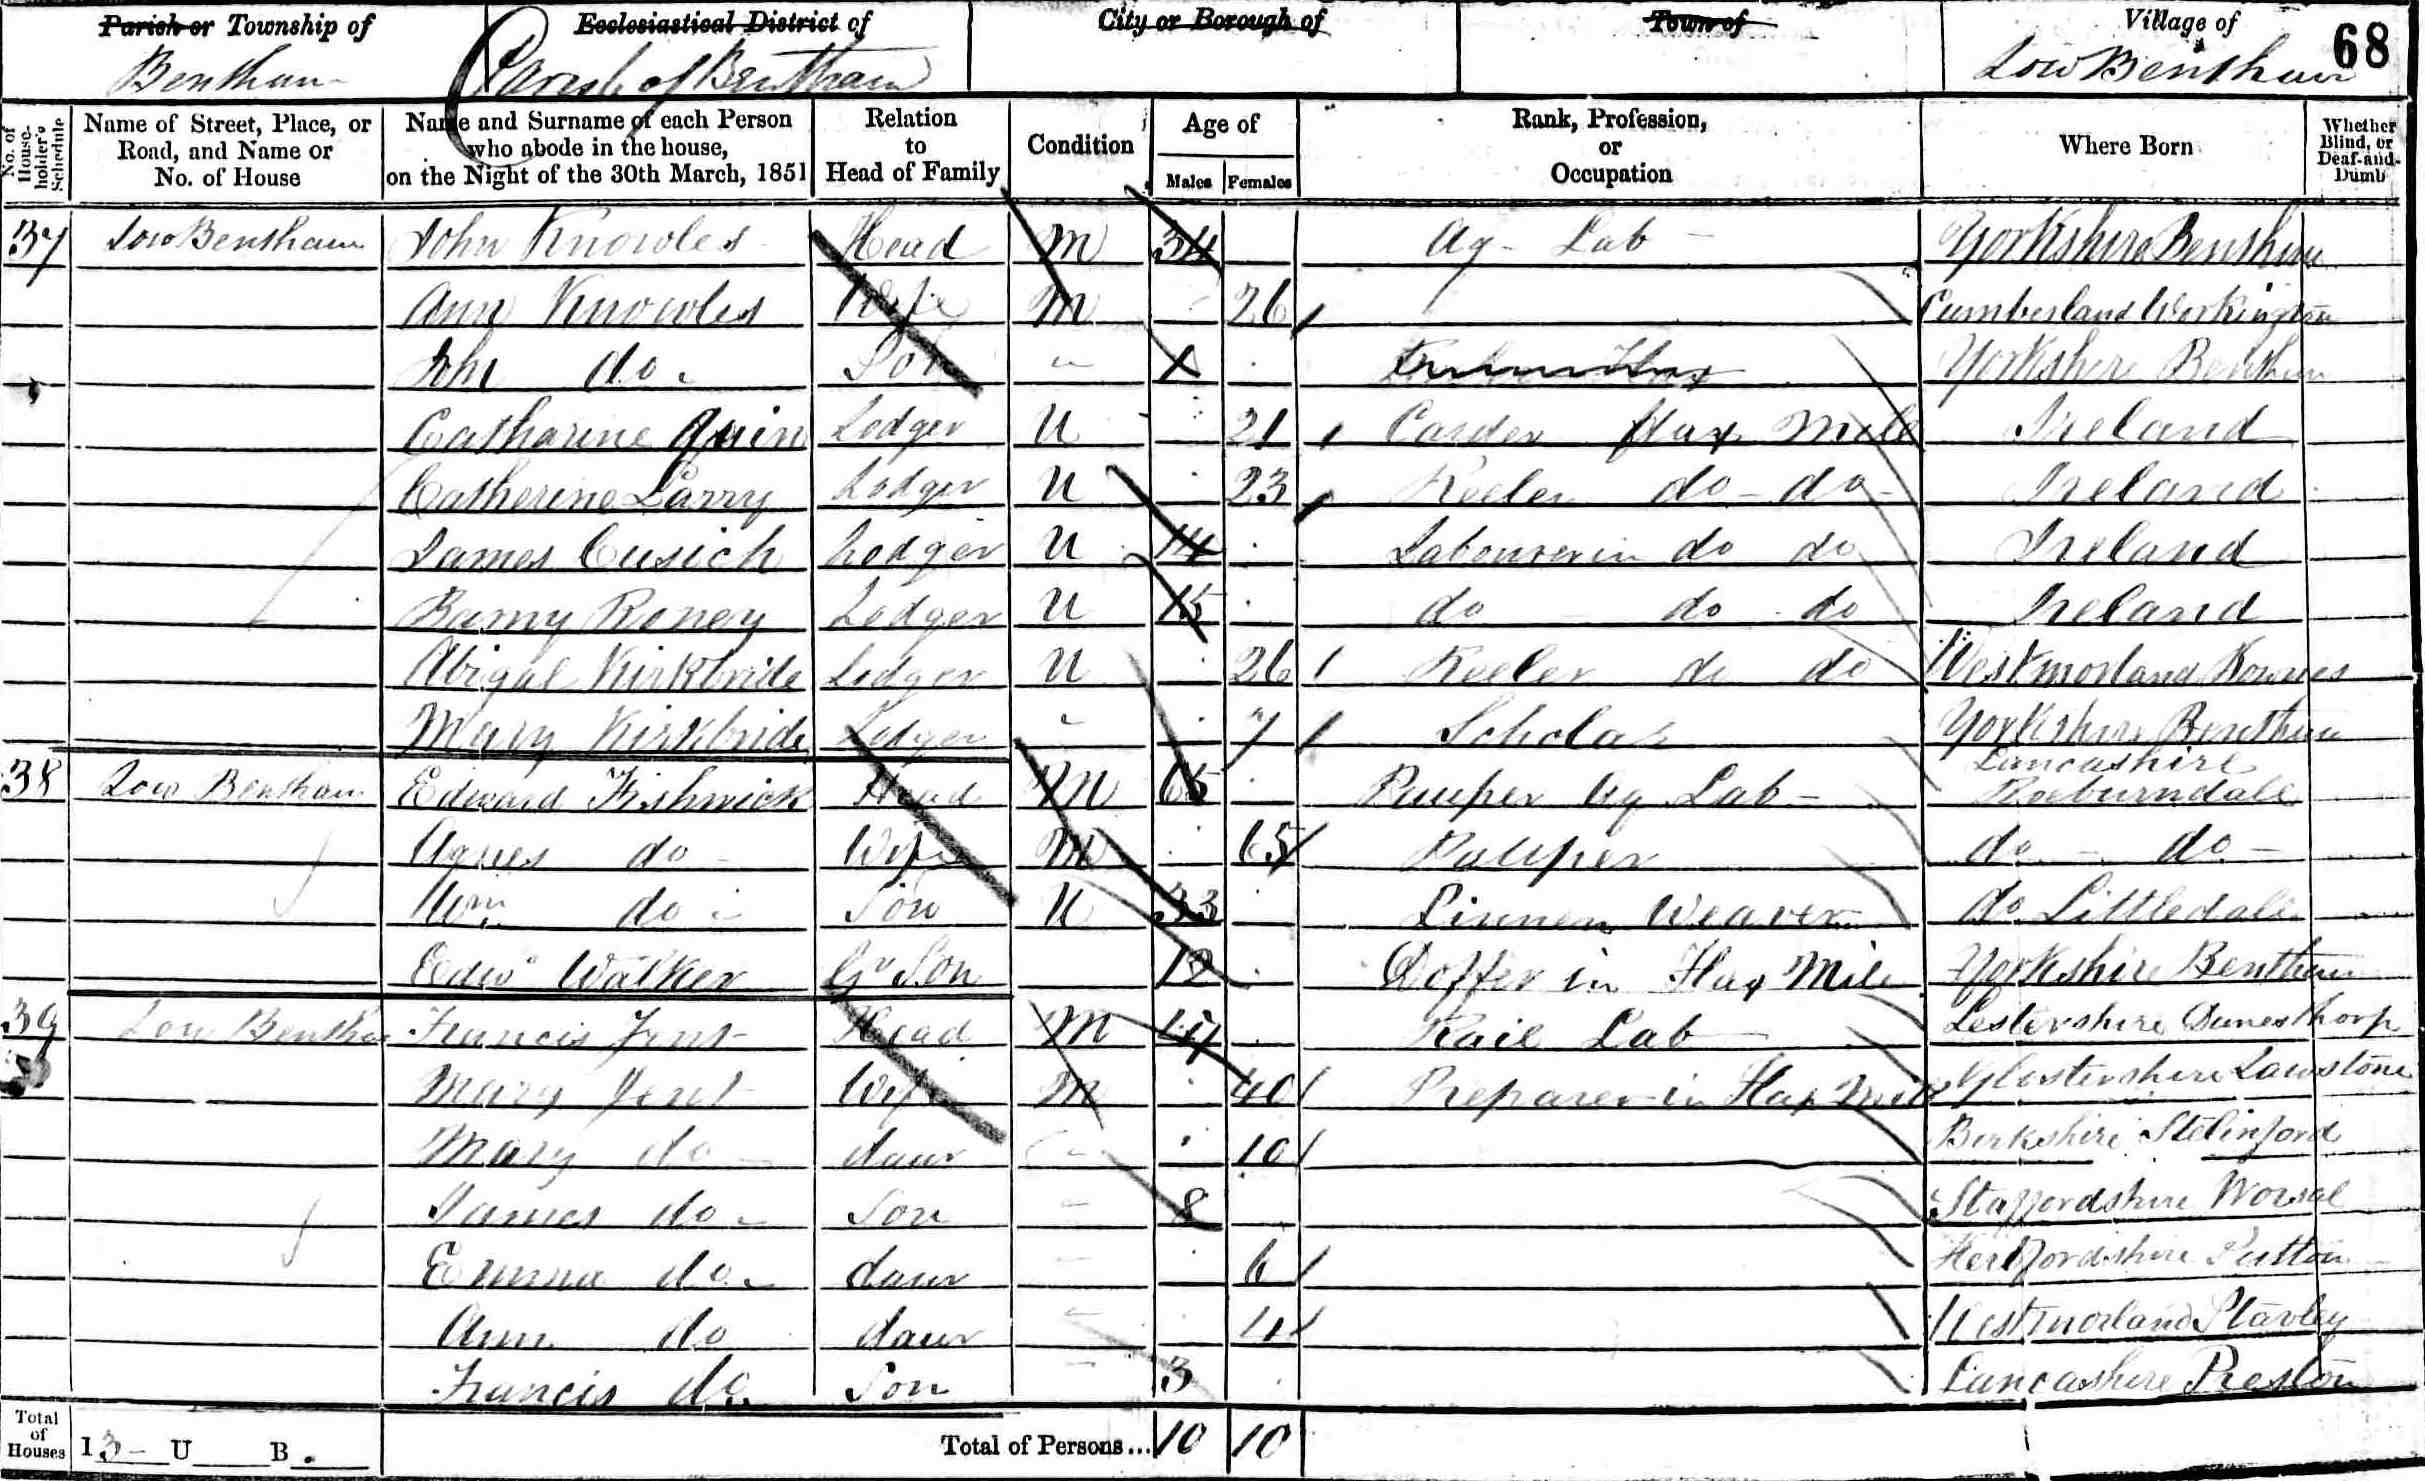 Parish or Township of
Bentham
Ecclesiastical District of
Parish of Bentham
City or Borough of
Town of
Village of
Low Bentham
68
No. of House-holder's Schedule
Name of Street, Place, or Road, and Name or No. of House
Name and Surname of each Person who abode in the house, on the Night of the 30th March, 1851
Relation to Head of Family
Condition
Age of
Males Females
Rank, Profession, or Occupation
Where Born
Whether Blind, or Deaf-and-Dumb
37 Low Bentham John Knowles Head M 34 Ag - Lab - Yorkshire Bentham
Ann Knowles Wife M 26 Cumberland Workington
John do Son 1 Yorkshire Bentham
Catharine Quin Lodger U 21 Carder Flax Mill Ireland
Catherine Larry Lodger U 23 Reeler do - do - Ireland
James Cusich Lodger U 14 Labourer in do do Ireland
Barny Roney Lodger U 15 do do do Ireland
Abigal Kirkbride Lodger U 26 Reeler do do Westmorland
Mary Kirkbride Lodger 7 Scholar Yorkshire Bentham
38 Low Bentham Edward Fishwick Head M 65 Pauper Ag Lab - Lancashire Roeburndale
Agnes do - Wife M 65 Pauper do - do -
Wm do - Son U 33 Linnen Weaver do Littledale
Edwd Walker Gr Son 12 Doffer in Flax Mill Yorkshire Bentham
39 Low Bentham Francis Jent Head M Rail Lab Lestershire Dunesthorp
Mary Jent Wife M 40 Preparer in Flax Mill Glostershire Lawstone
Mary do - daur 10 Berkshire
James do - Son 8 Staffordshire Worsal
Emma do - daur 6 Hertfordshire Putton
Ann do daur 4 Westmorland Stavley
Francis do Son 3 Lancashire Preston
Total of Houses I 3 - U B
Total of Persons... 10 10